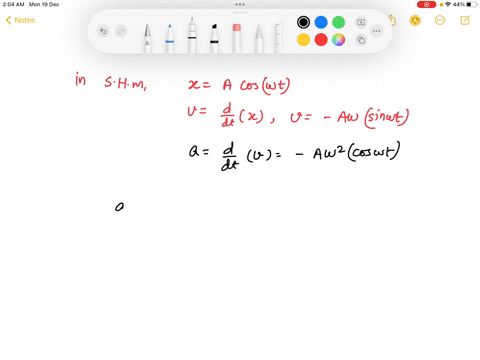 2:04 AM Mon 19 Dec
44%
Notes
in S.H.M, x = A cos(ωt)
v = d/dt (x), v = - Aω (sinωt)
a = d/dt (v) = - Aω² (cosωt)
a